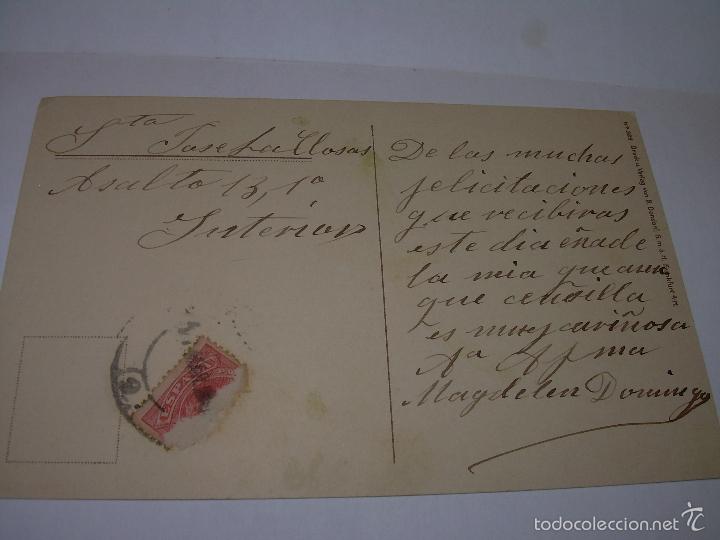 Sta
Josefa Llosas
Asalto 13, 1º
Interior
De las muchas
felicitaciones
que recibiras
este dia eñade
la mia que aun
que cencilla
es muy cariñosa
Aª Afma
Magdalen Domingo
ESPAÑA
todocoleccion.net